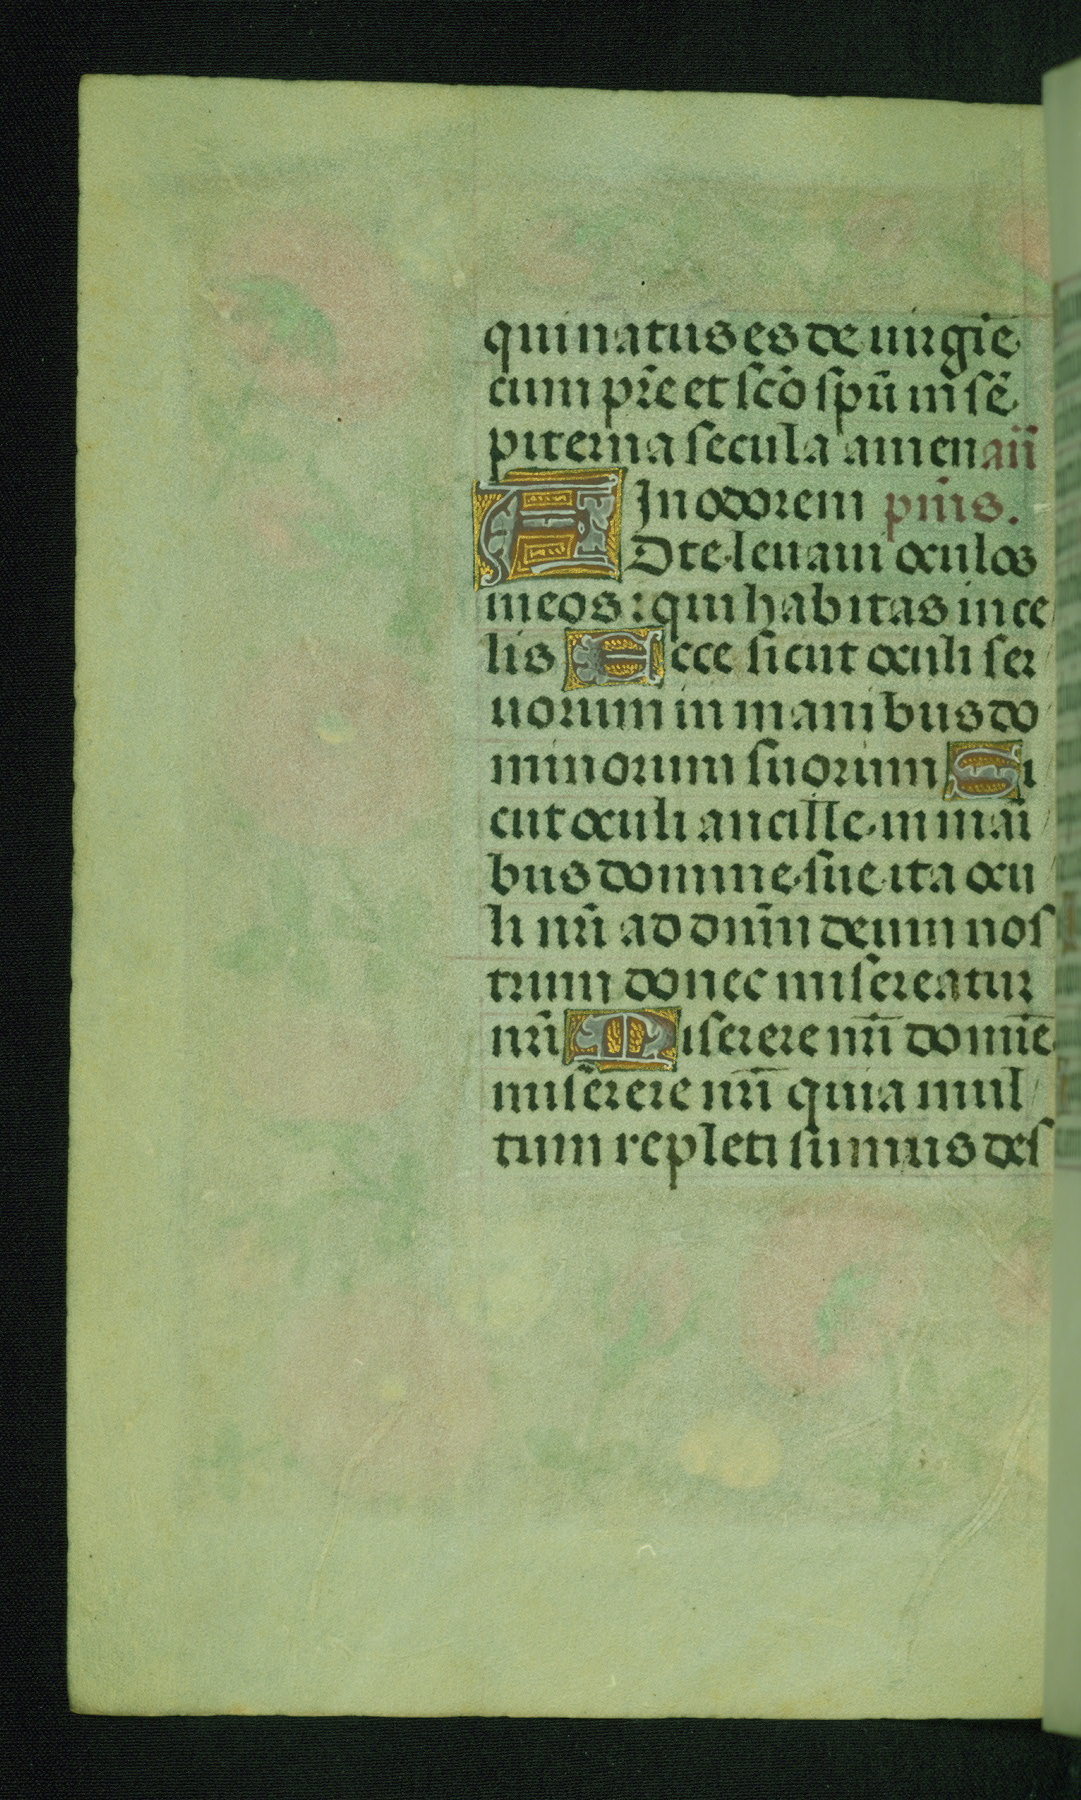 qui natus es de uirgīe
cum pr̄e et sc̄o spū in sē
piterna secula amen añ
In odorem pn̄is.
AD te leuaui oculos
meos : qui habitas in ce
lis Ecce sicut oculi ser
uorum in manibus do
minorum suorum Si
cut oculi ancille in maī
bus domine sue ita ocu
li nr̄i ad dn̄m deum nos
trum donec misereatur
nr̄i Miserere nr̄i domīe
miserere nr̄i quia mul
tum repleti sumus des